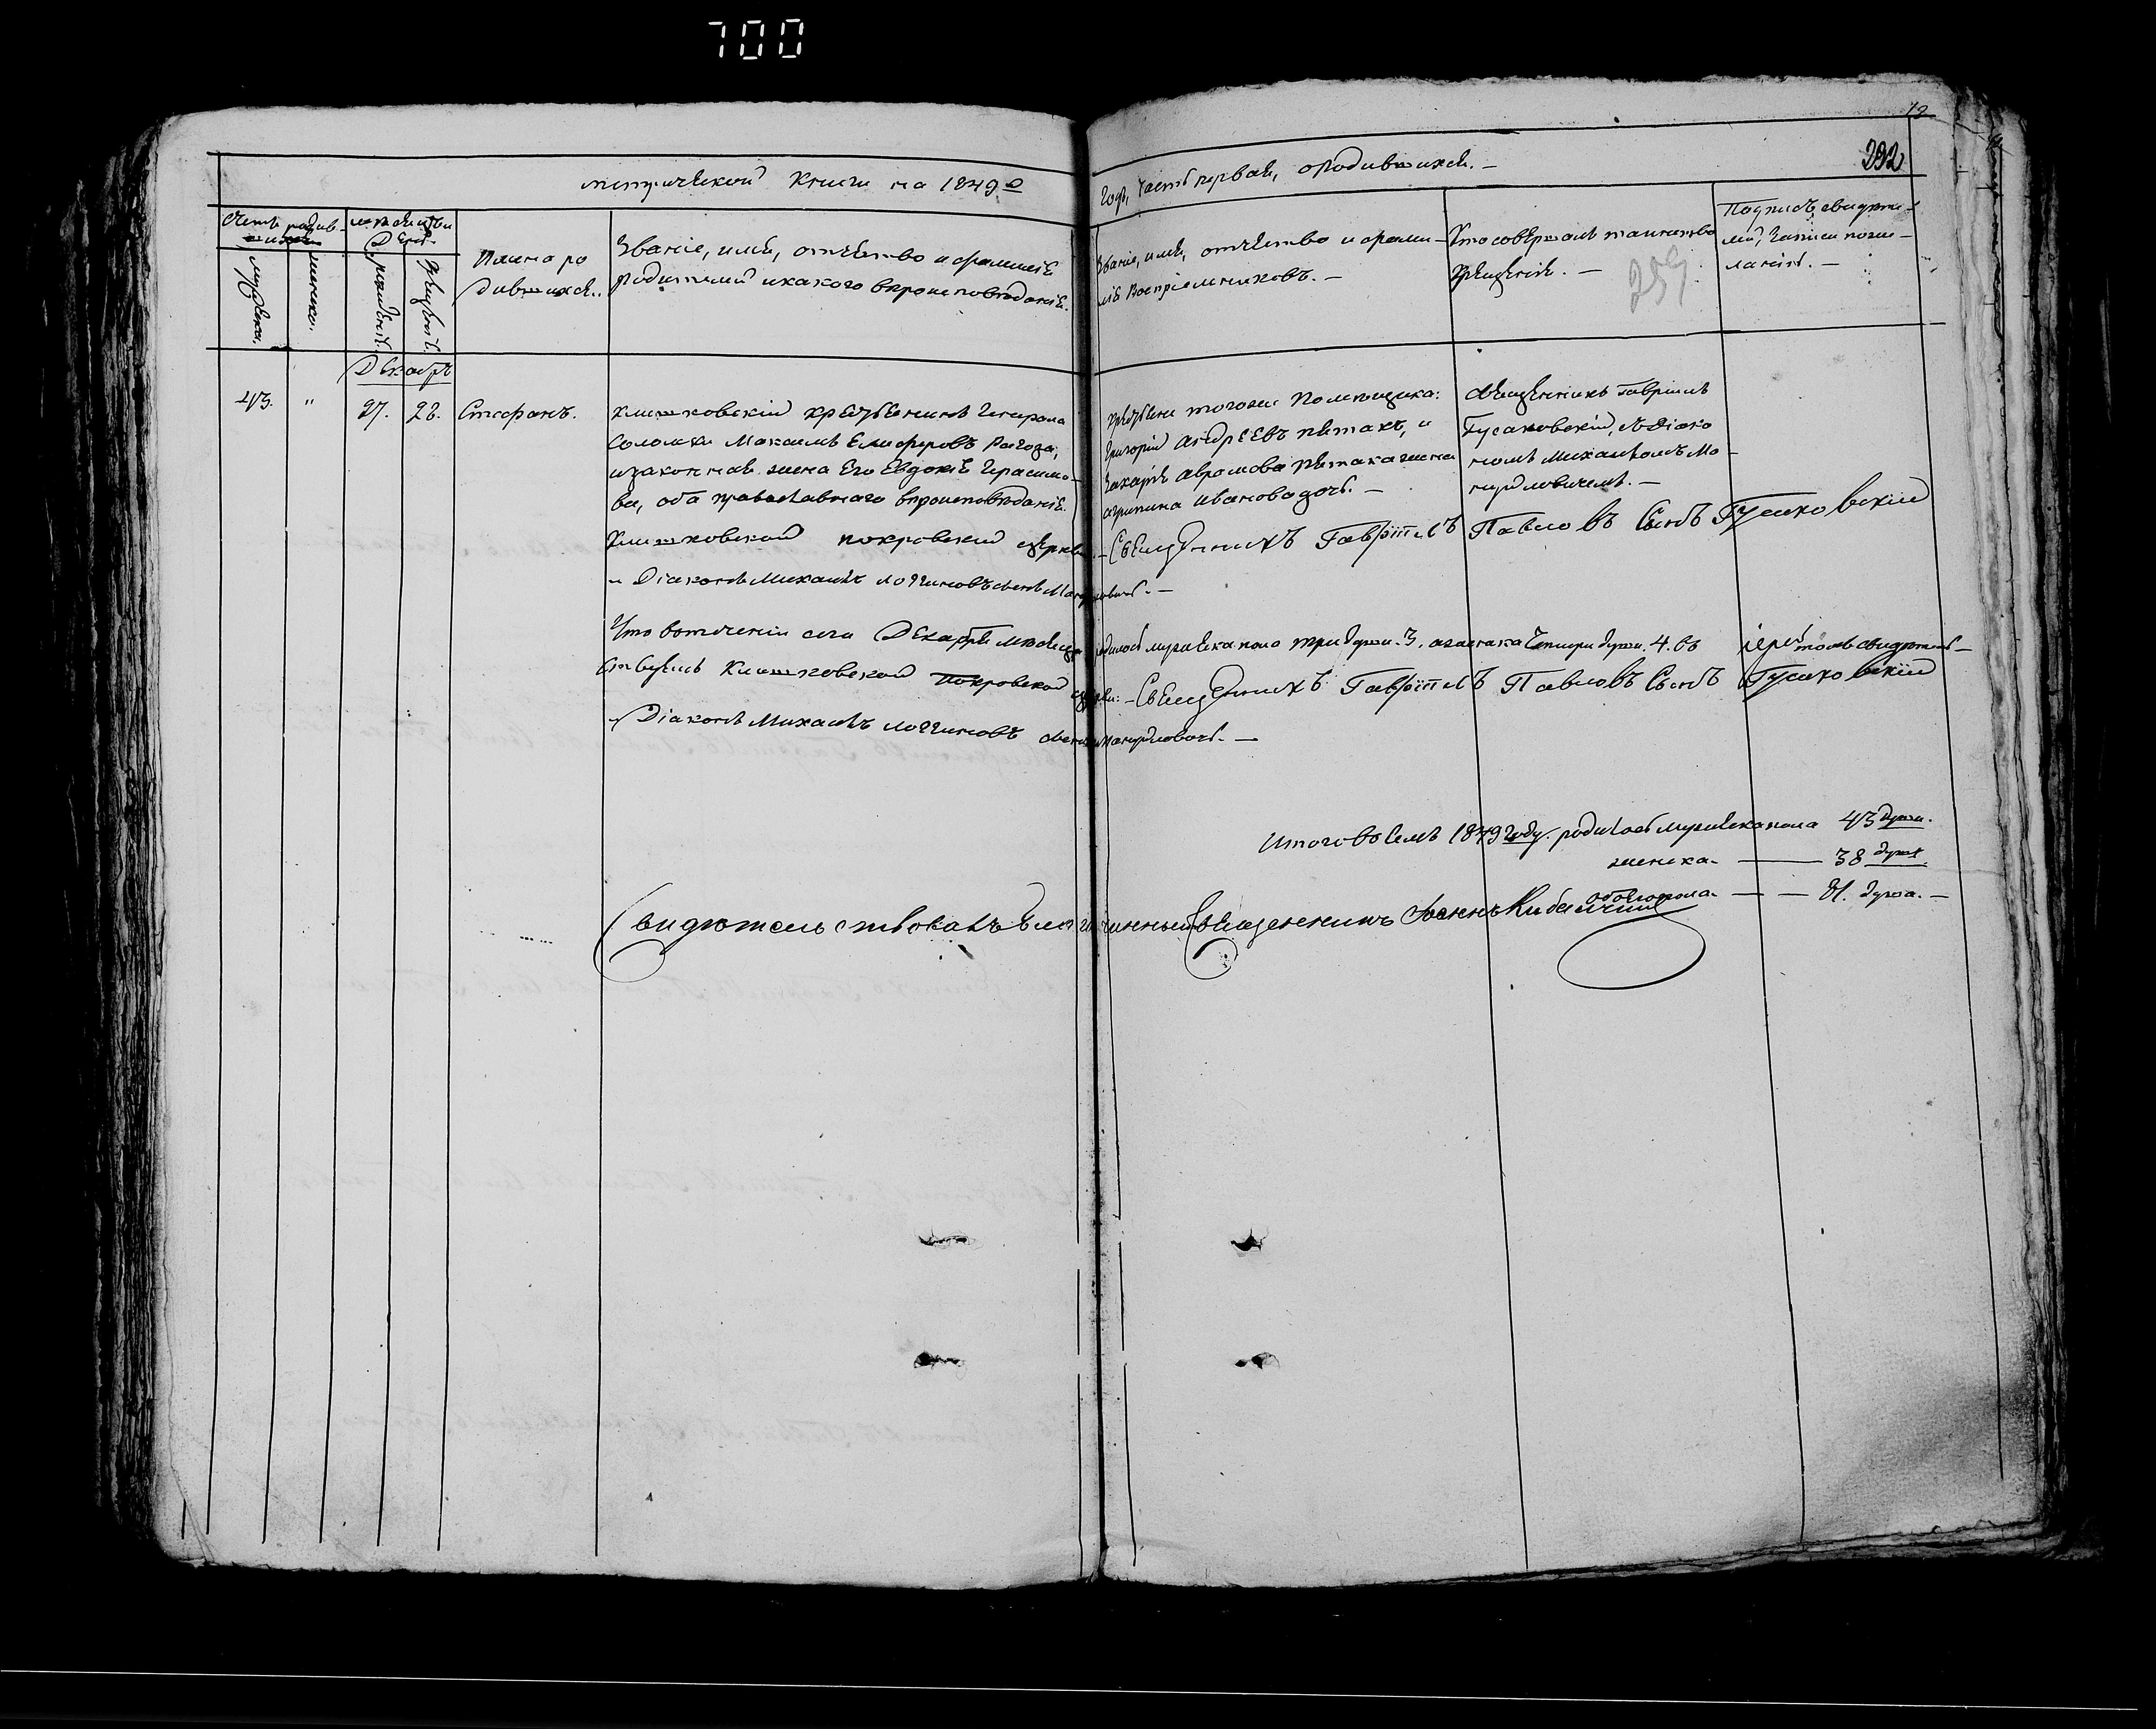 700
12
292
метрической Книги на 1849 о
годъ, Часть первая, о родившихся. –
Счетъ родив-
шихся
мужеска.
женска.
Мѣсяцъ и
День
рожденія.
крещенія.
Имена ро
дившихся.
Званіе, имя, отчество и фамилія
Родителей и какого вѣроисповѣданія.
Званіе, имя, отчество и фами-
лія Воспріемниковъ. –
Кто совершалъ таинство
Крещенія. –
259
Подпись свидѣте-
лей, записи по же-
ланію. –
Декабрь
43. " 27. 28. Стефанъ.
Клишковскій крестьянинъ Генерала
Соломки Максимъ Елисферовъ Рагоза,
и законная жена его Евдокія Герасимо-
ва, оба православнаго вѣроисповѣданія.
крестьяне того же Помещика:
Григорій Андреевъ Пятакъ, и
Захарія Авраамова Пятака жена
Агрипина Иванова дочь. –
Священникъ Гавріилъ
Гусаковскій, съ Діако
номъ Михаиломъ Ма-
нджовичемъ. –
Клишковской Покровской церкви. – Священникъ Гавріилъ Павловъ Сынъ Гусаковскій
– Діаконъ Михаилъ Логгиновъ сынъ
Что въ теченіи сего Декабря мѣсяца родилось мужеска пола три души. 3. а женска Четыри души. 4. въ
Клишковской Покровской церкви: – Священникъ Гавріилъ Павловъ Сынъ Гусаковскій
– Діаконъ Михаилъ Логгиновъ сынъ
Итого въ семъ 1849 году. родилось мужеска пола 43 души.
женска. – 38 душъ
обоего пола. – – 81. душа. –
Свидѣтельствовалъ Благочинный Священникъ Іоаннъ Кибальчичъ